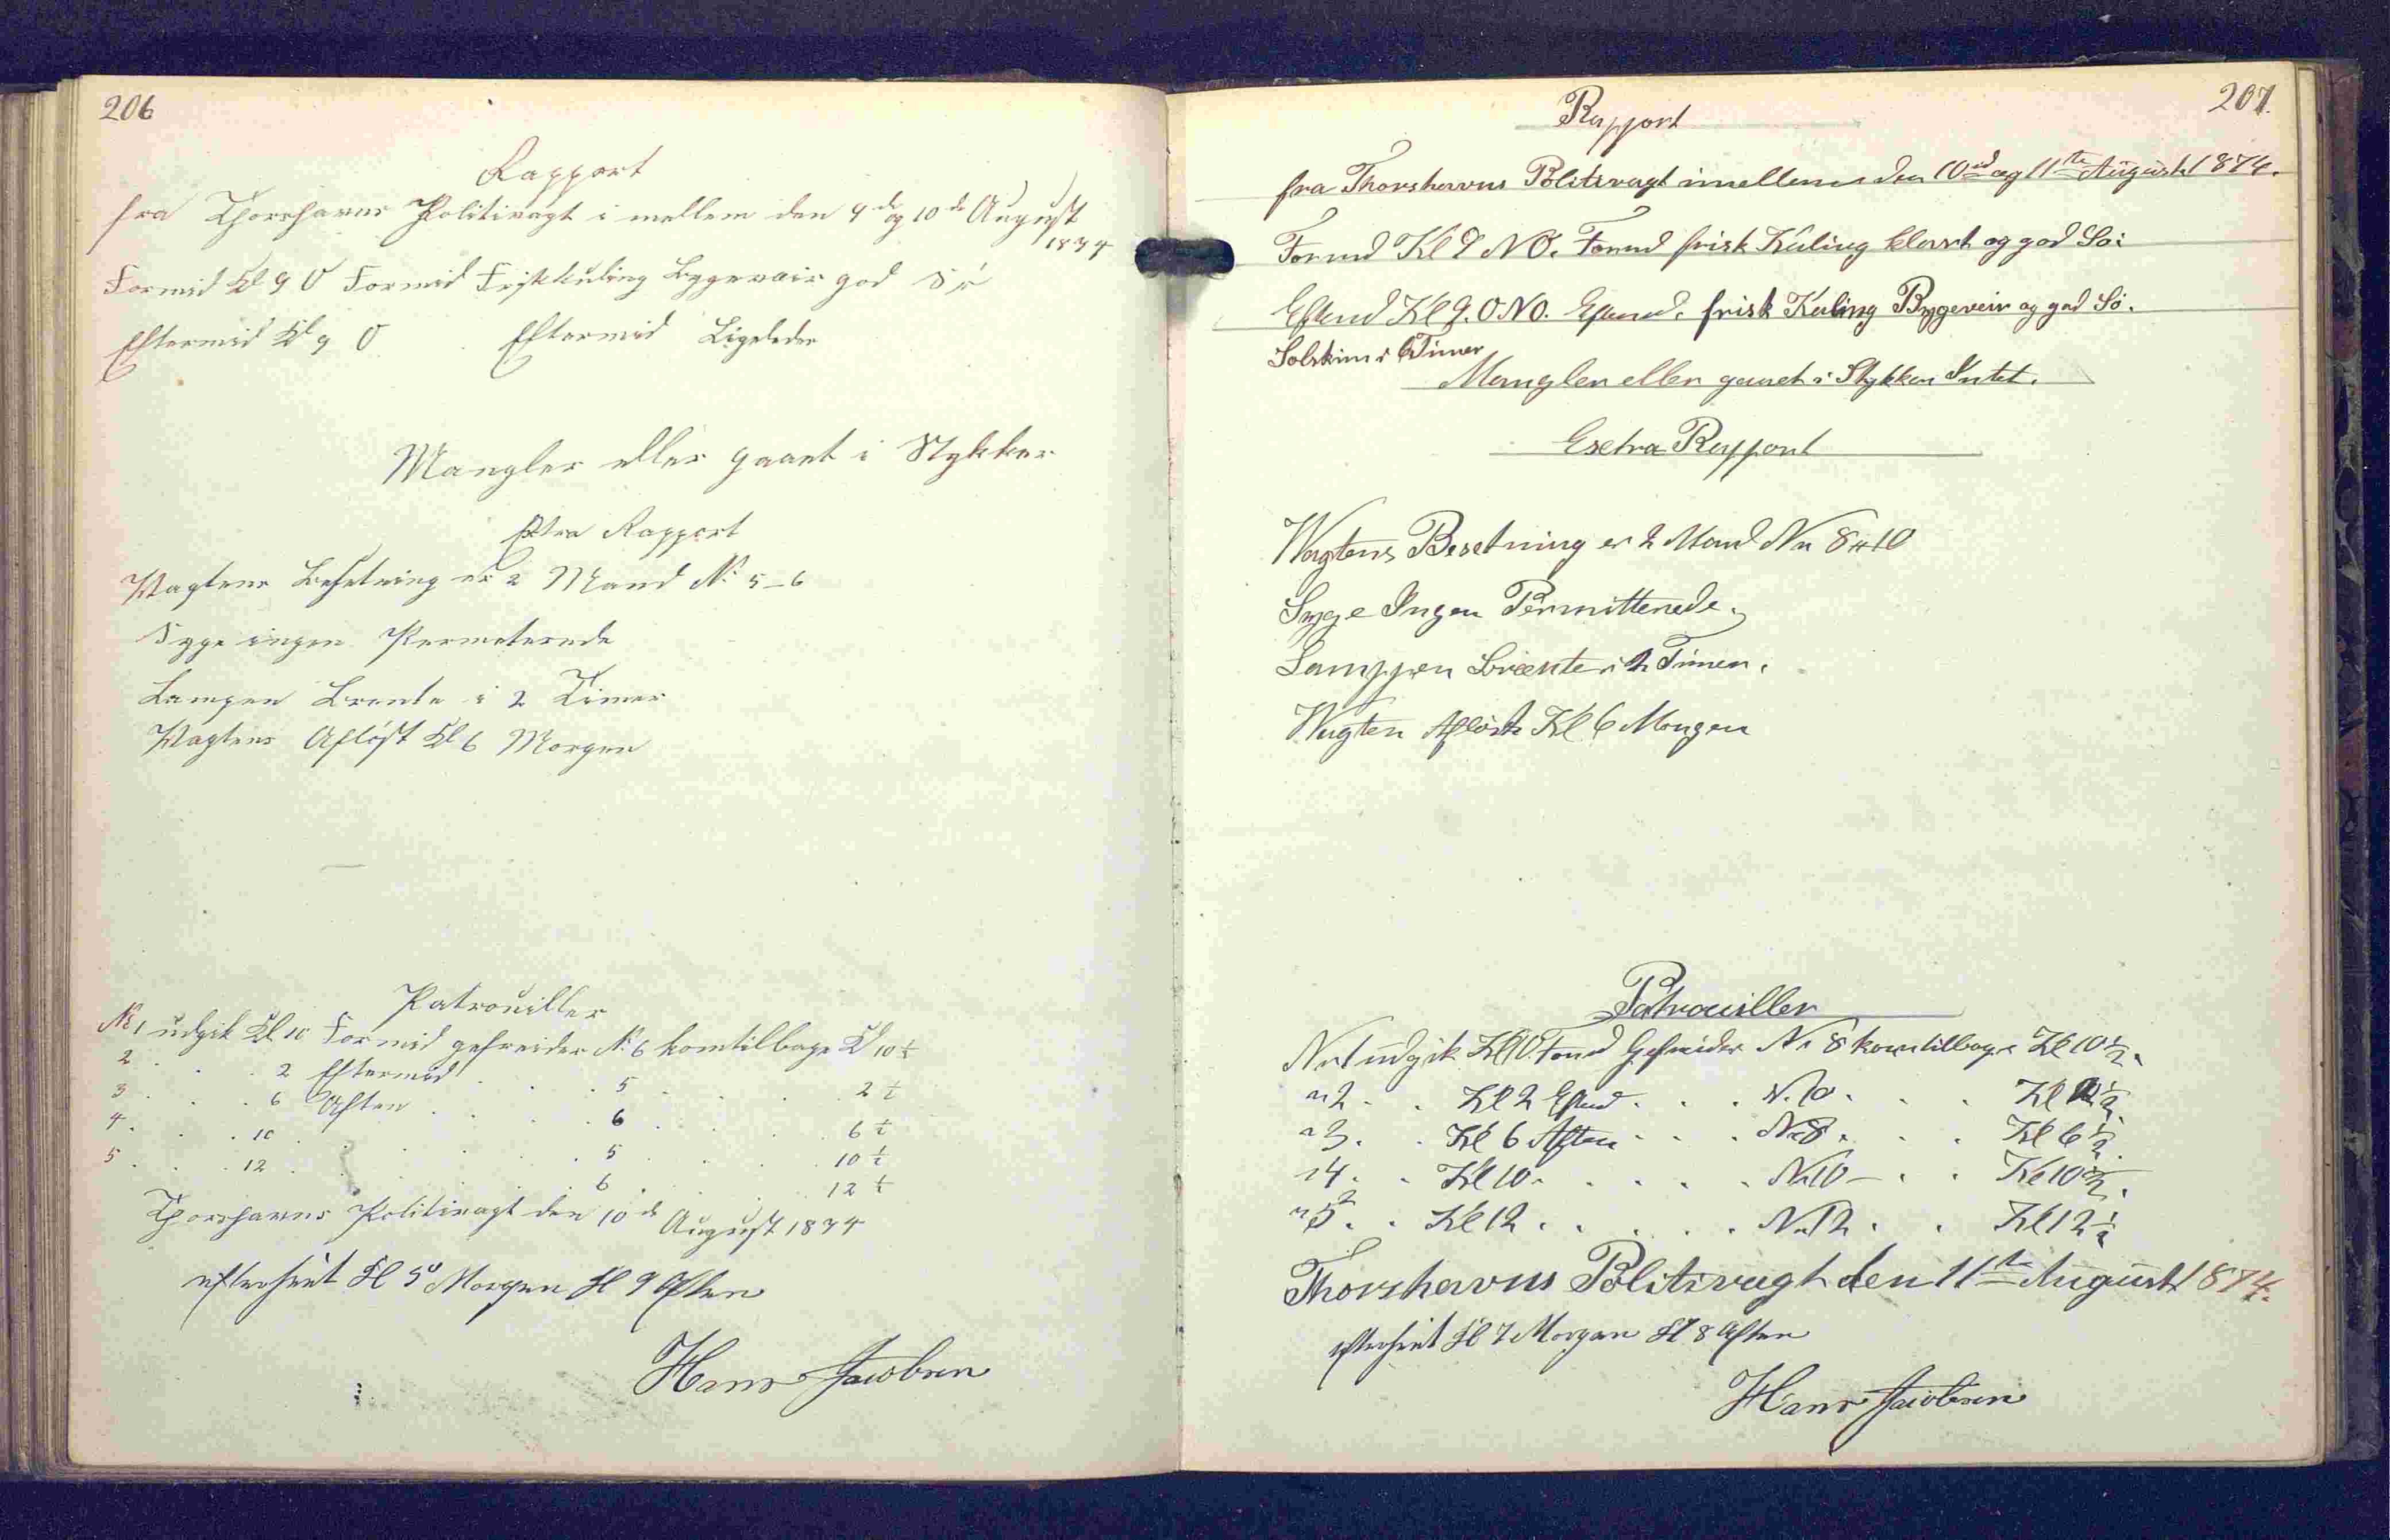 206
Rapport
fra Thorshavns Politivagt i mellem den 9de og 10de August
1874
Formid Kl 9 O Formid Friskkuling Bygevair god Sø
Eftermid Kl 9 O Eftermid Ligeledes
Mangler eller gaaet i Stykker
Extra Rapport
Vagtens Besetning er 2 Mand No 5-6
Syge ingen Permeterede
Lampen Brente i 2 Timer
Vagtens Afløst Kl 6 Morgen
Patrouiller
No 1 udgik Kl 10 Formid gefreider No 6 komtilbage Kl 10 ½
2 . . . 2 Eftermid . . . 5 . . . 2 ½
3 . . . 6 Aften . . . 6 . . . 6 ½
4 . . . 10 . . . 5 . . . 10 ½
5 . . . 12 . . . 6 . . . 12 ½
Thorshavns Politivagt den 10de August 1874
efterseet Kl 5 Morgen Kl 9 Aften
Hans Jacobsen
207.
Rapport
fra Thorshavns Politivagt imellem den 10de og 11te August 1874.
Formd Kl 9 NO. Formd frisk Kuling klart og god Sø:
Eftmd Kl 9. ONO. Eftmd. frisk Kuling Bygeveir og god Sö.
Solskin i 6 Timer
Mangler eller gaaet i Stykker Intet.
Exetra Rapport
Wagtens Besetning er 2 Mand Nr 8 " 10
Syge Ingen Permitterede.
Lamppen Brænte i 2 Timer.
Wagten Afløst Kl 6 Morgen
Patrouiller
Nr 1 udgik Kl 10 Fomd Gefreider Nr 8 komtilbage Kl 10 ½.
" 2 . . Kl 2 Eftmd . . . N. 10 . . . Kl 2 ½
" 3 . . Kl 6 Aften . . . Nr 8 . . . Kl 6 ½.
" 4 . . Kl 10 . . . . . N. 10 — . . Kl 10 ½.
" 5 . . Kl 12 . . . . . N. 12 . . Kl 12 ½
Thorshavns Politivagt den 11te August 1874.
efterseet Kl 7 Morgen Kl 8 Aften
Hans Jacobsen